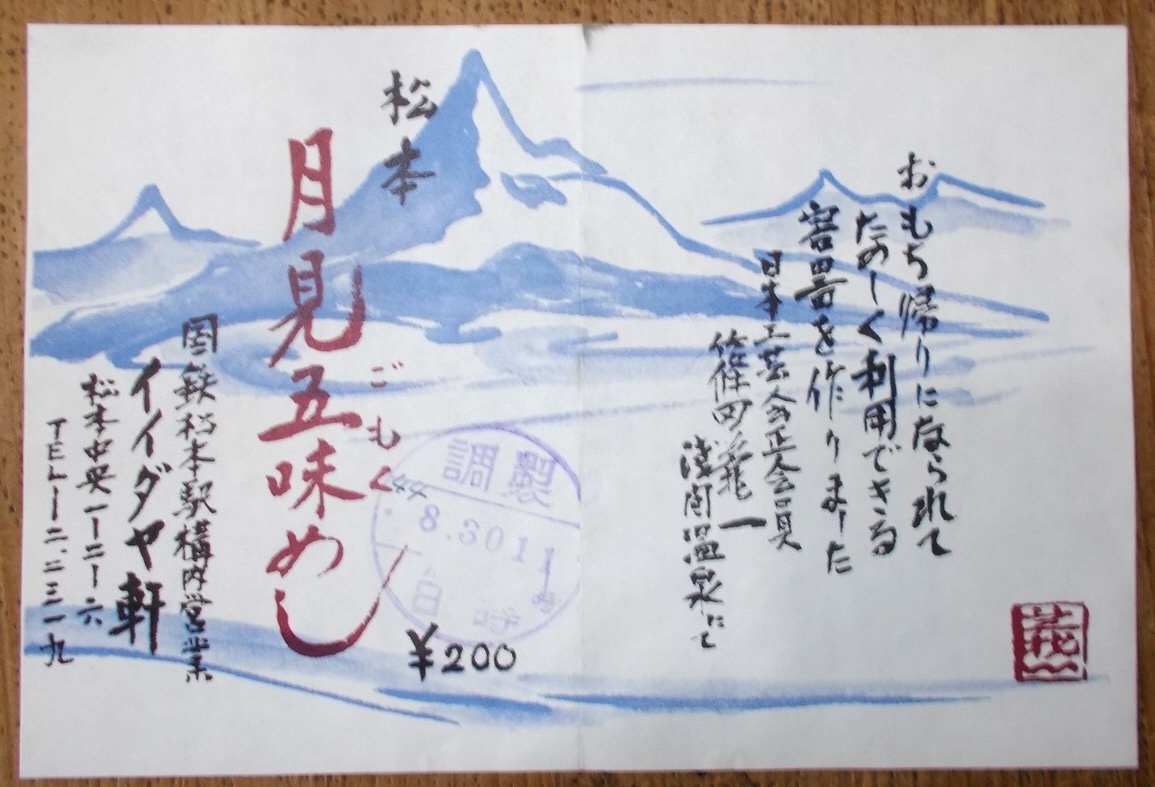 おもち帰りになられて
たのしく利用できる
容器を作りました
日本工芸会正会員
篠田義一
浅間温泉にて
松本
月見五味めし
ごもく
¥200
調製
44
8.30 11
日 時
国鉄松本駅構内営業
イイダヤ軒
松本中央一ー二ー六
TELー二.二三一九